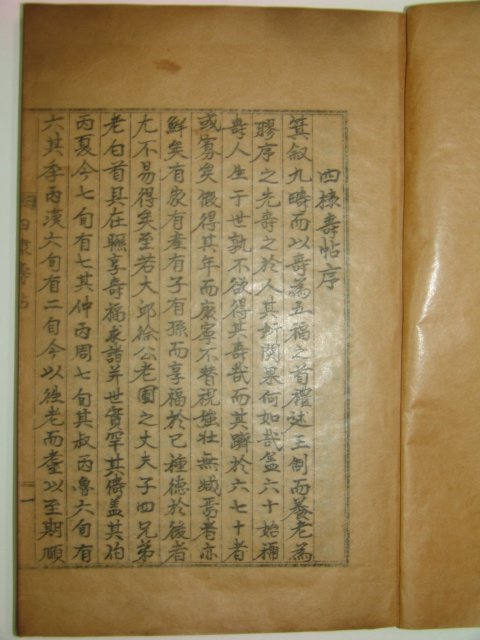 四棣壽帖序
箕叙九疇而以壽為五福之首禮述王制而養老為
膠序之先壽之於人其所関果何如哉盖六十始稱
壽人生于世孰不欲得其壽哉而其躋於六七十者
或寡矣假得其年而康寧不替視強壯無减焉者亦
鮮矣有家有產有子有孫而享福於己種德於後者
尤不易得矣至若大邱徐公老園之丈夫子四兄弟
老白首具在聯享壽福求諸并世實罕其儔盖其伯
丙夏今七旬有七其仲丙周七旬其叔丙魯六旬有
六其季丙漢六旬有二旬今以後老而耋以至期頤
四棣壽帖
一